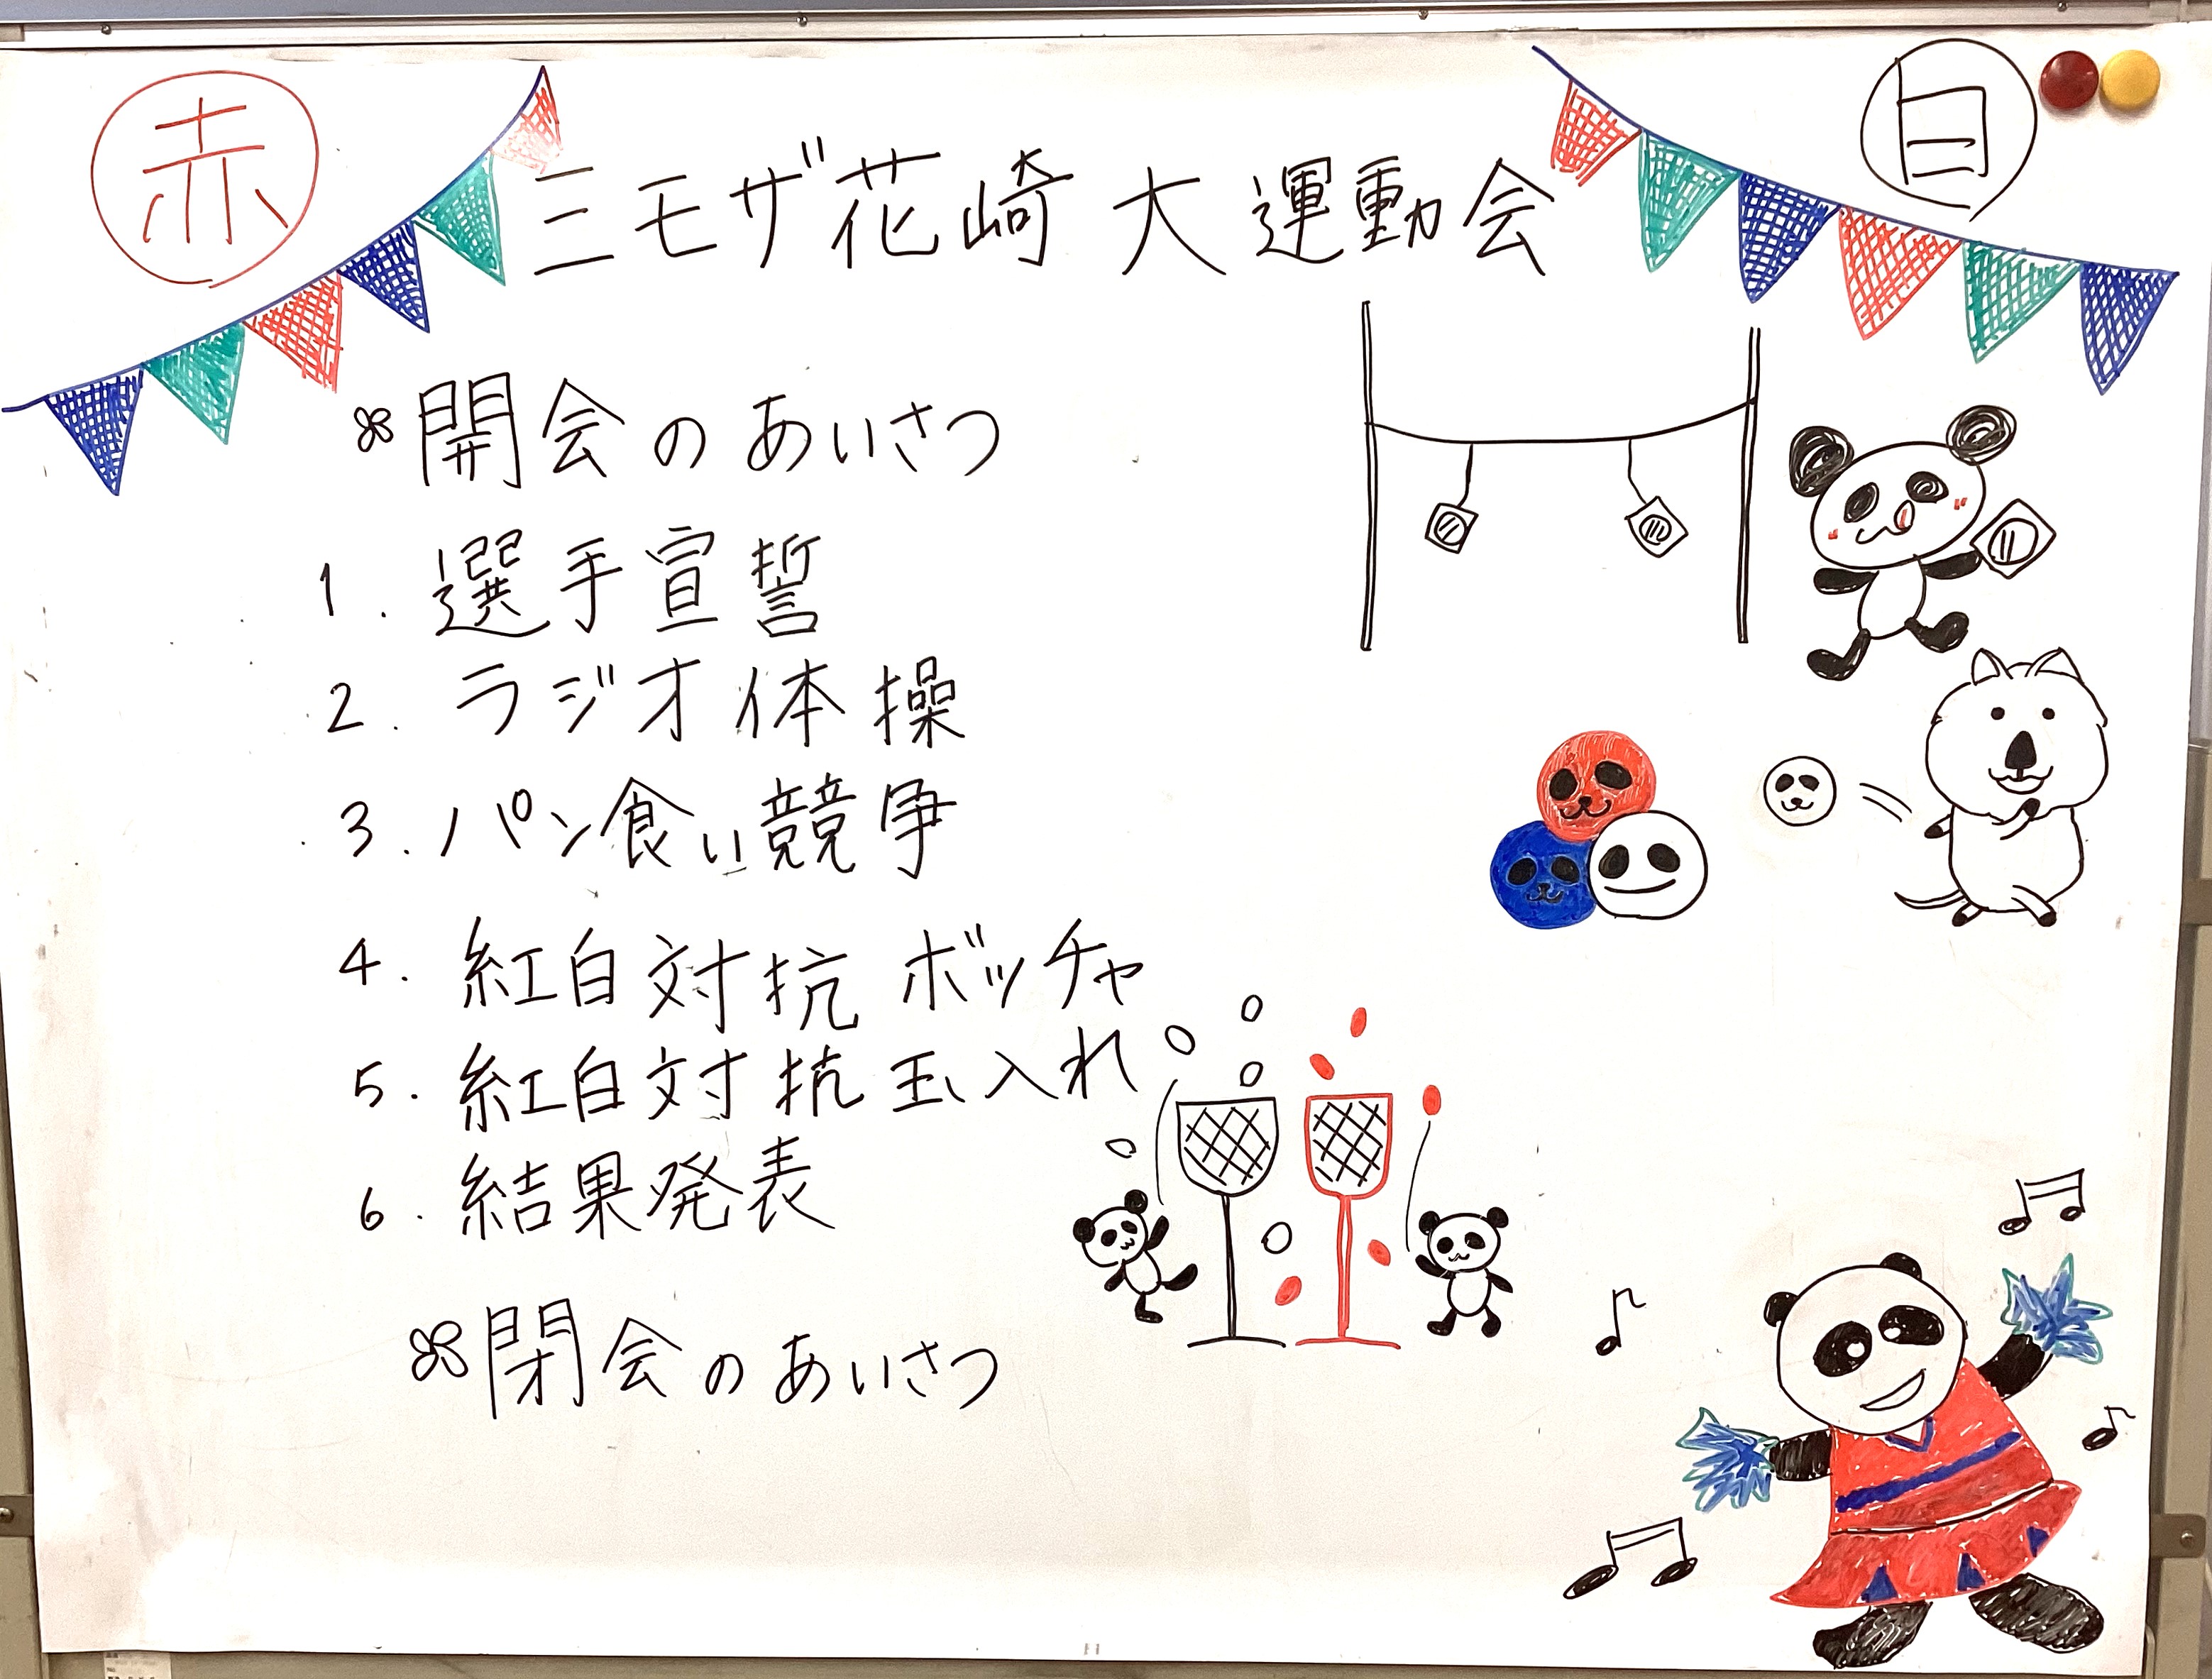 赤
白
ミモザ花崎 大運動会
開会のあいさつ
1. 選手宣誓
2. ラジオ体操
3. パン食い競争
4. 紅白対抗 ボッチャ
5. 紅白対抗 玉入れ
6. 結果発表
閉会のあいさつ